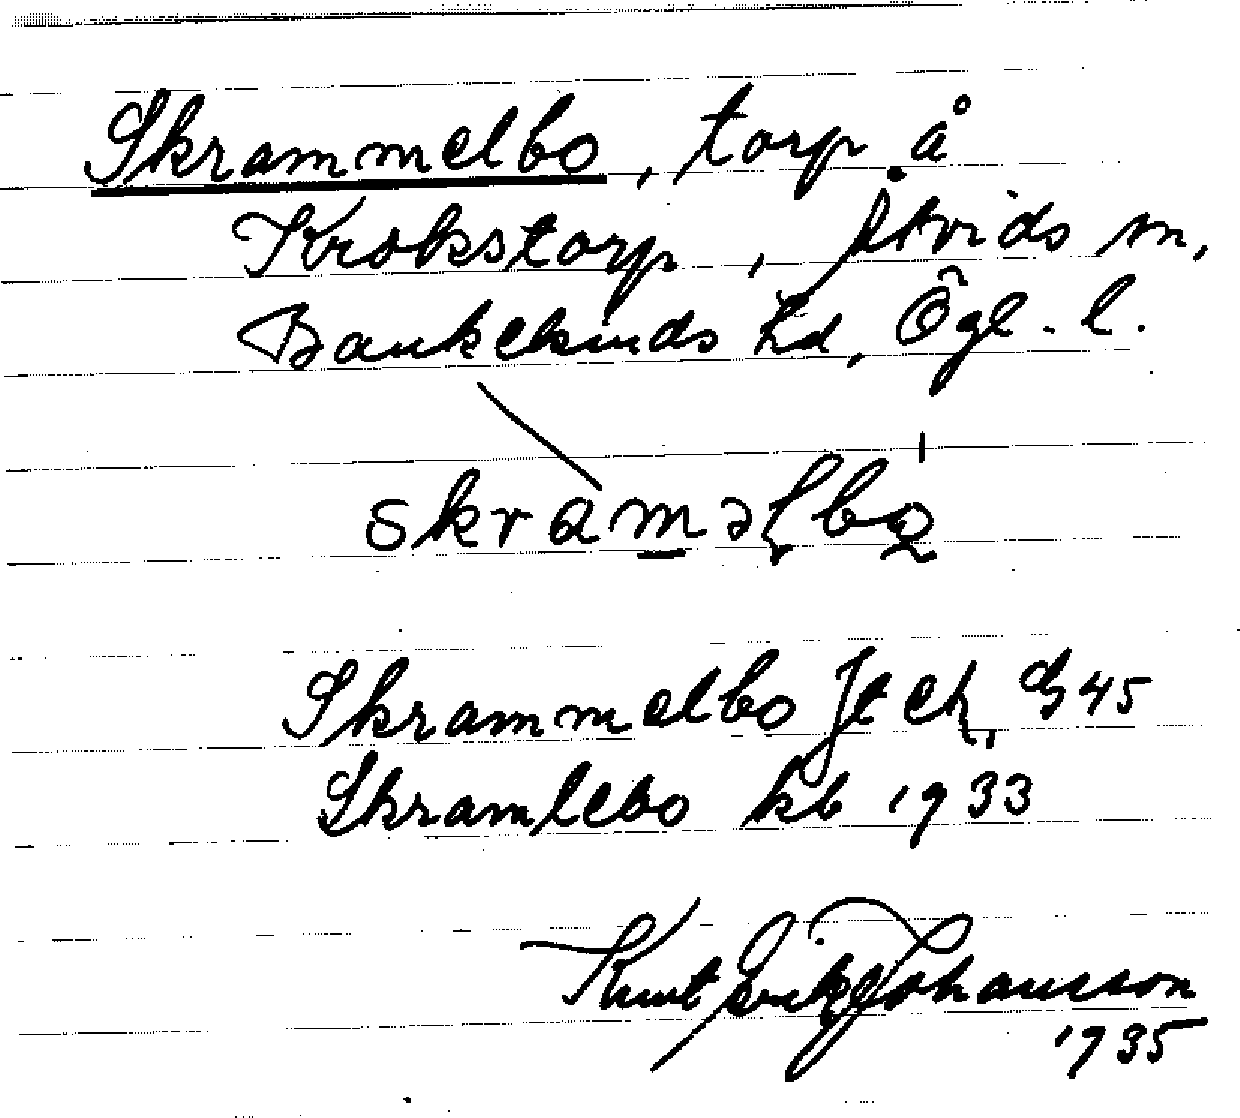 Skrammelbo, torp å
Krokstorp, Åtvids sn,
Bankekinds hd, Ögl. l.
skraməlbo
Skrammelbo Jt ch, G 45
Skramlebo kb 1933
Kurt Erik Johansson
1935